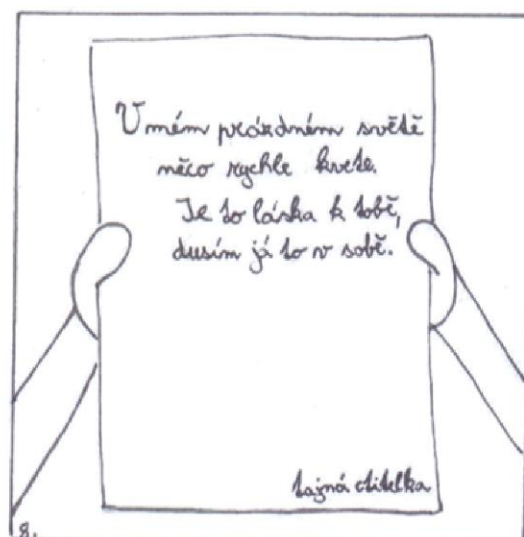 V mém prázdném světě
něco rychle kvete.
Je to láska k tobě,
dusím já to v sobě.
tajná ctitelka
8.